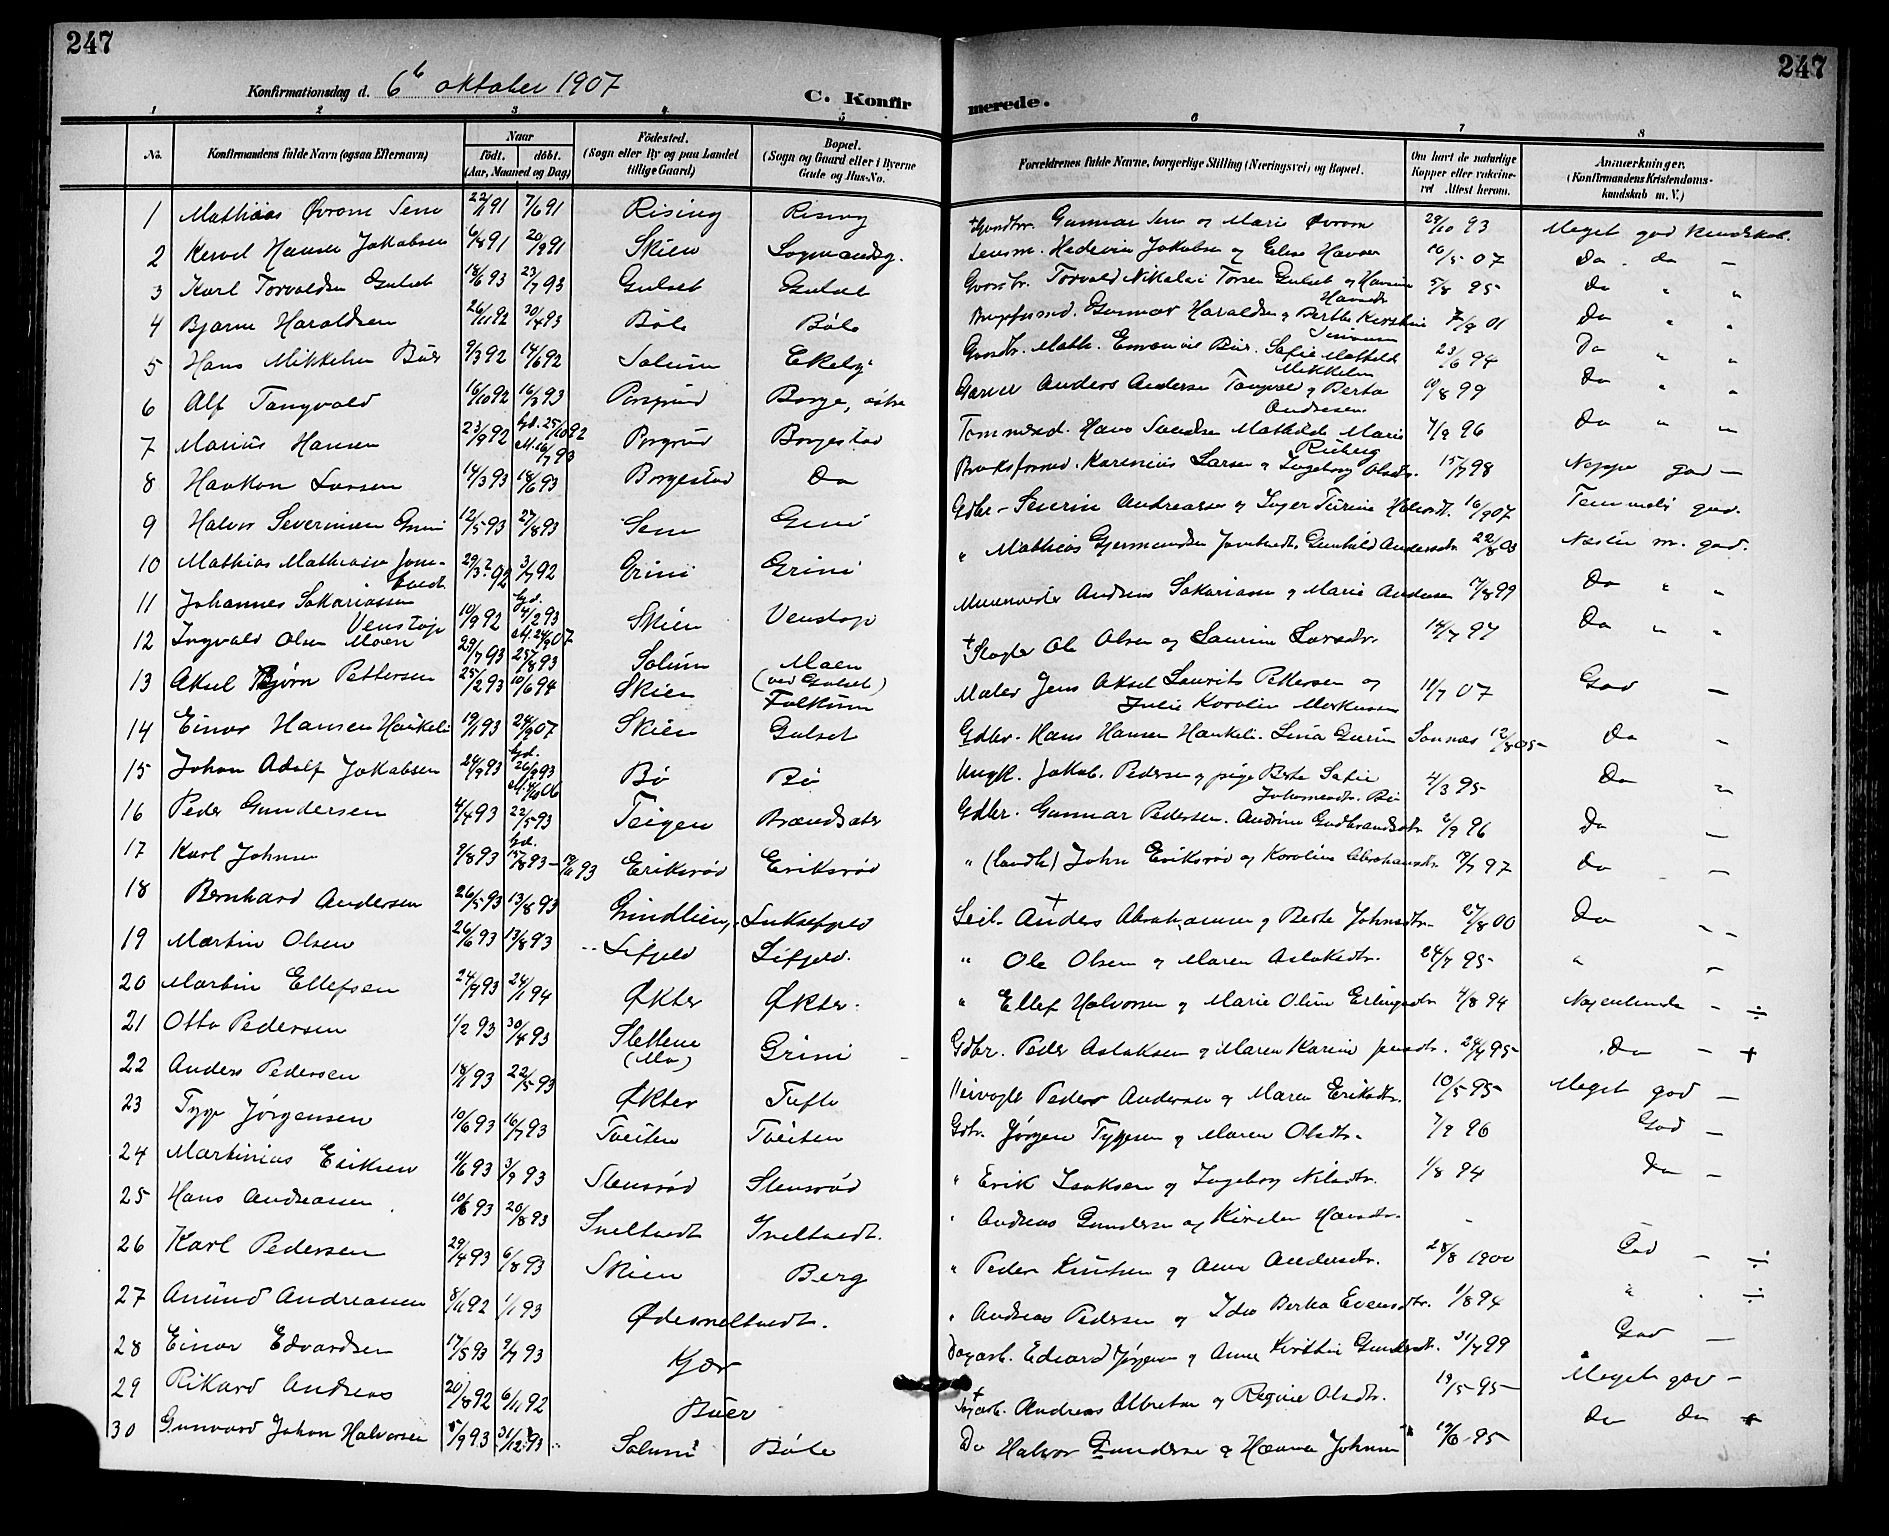 247
247
Konfirmationsdag d. 6te oktober 1907
C. Konfirmerede.
1 2 3 4 5 6 7 8
No.
Konfirmandens fulde Navn (ogsaa Efternavn)
Naar
födt. döbt.
(Aar, Maaned og Dag)
Födested.
(Sogn eller By og paa Landet
tillige Gaard)
Bopæl.
(Sogn og Gaard eller i Byerne
Gade og Hus-No.
Forældrenes fulde Navne, borgerlige Stilling (Næringsvei) og Bopæl.
Om havt de naturlige
Kopper eller vakcineret
Attest herom.
Anmærkninger.
(Konfirmandens Kristendomskundskab
m. V.)
1 Mathias Øvrom Sem 22/1 91 7/6 91 Rising Rising Gunnar Sem og Marie Øvrom 29/10 93 Meget god kundskab.
2 Hansen Jakobsen 6/8 91 20/9 91 Skien Lensm. Jakobsen og Elise Hansen 10/5 07 Do. do —
3 Karl Torvaldsen Gulset 18/6 93 23/7 93 Gulset Gulset Torvald Nikolai Torsen Gulset og Hansine Hansdr 5/8 95 Do " "
4 Bjarne Haraldsen 26/11 92 30/4 93 Bøle Bøle Gunnar Haraldsen og Berthe Kirstine 7/9 01 Do " "
5 Hans Mikkelsen Buer 9/3 92 14/6 92 Solum Math. Emanuel Buer. Sofie Mathilde Mikkelsen 23/6 94 Do " "
6 Alf Tangvald 16/10 92 16/3 93 Porsgrund Borge, østre Garver Anders Andersen Tangvald og Berta Andresen 10/8 99 Do " "
7 Marius Hansen 23/9 92 hjd. 25/10 92 Porsgrund Borgestad Hans Mathilde Marie 7/9 96 Do " "
8 Haakon Larsen 14/3 93 18/6 93 Borgestad Do Karenius Larsen og Ingeborg Olsdr. 15/7 98 Neppe god —
9 Halvor Severinsen Grini 12/5 93 27/8 93 Sem Grini Gdbr — Severin Andreassen og Inger Turine Halvordt. 16/9 07 Temmelig god.
10 Mathias Mathisen Jomtvedt 29/3? 92 3/7 92 Grini Grini " Mathias Gjermundsen Jomtvedt. Gunhild Andersdtr 22/8 03 Næsten m. god.
11 Johannes Sakariassen Venstøp 10/9 92 hjd. 4/2 93 Skien Venstøp Andreas Sakariassen og Marie Andersen 7/8 99 Do " "
12 Ingvald Olsen Moen 29/7 93 Solum Moen (ved Gulset) Ole Olsen og Laurine Larsdtr. 14/7 97 Do " "
13 Aksel Bjørn Pettersen 25/2 93 10/6 94 Skien Falkum Maler Jens Aksel Laurits Pettersen og Julie Karoline Markussen 11/7 07 God —
14 Einar Hansen Haukeli 19/1 93 24/9 07 Skien Gulset Gdbr. Hans Hansen Haukeli. Lina Gurine 12/8 05 Do —
15 Johan Adolf Jakobsen 24/9 93 hjd. 26/9 93 Bø Bø Ungk. Jakob Pedersen og pige Berte Sofie Johannesdtr. Bø 4/3 95 Do —
16 Peder Gundersen 4/4 93 22/5 93 Teigen Brændsæter Gdbr. Gunnar Pedersen. Andrine Gudbrandsdtr 2/9 96 Do —
17 Karl Johnsen 9/8 93 hjd. 15/8 93 — 19/11 93 Eriksrød Eriksrød " (landh) John Eriksrød og Karoline Abrahamsdtr. 9/7 97 Do —
18 Bernhard Andersen 26/5 93 13/8 93 Grindlien, Luksefjeld Leil. Anders Abrahamsen og Berte Johnsdtr. 27/8 00 Do —
19 Martin Olsen 26/6 93 13/8 93 Lifjeld Lifjeld. " Ole Olsen og Maren Aslaksdtr. 24/7 95 " —
20 Martin Ellefsen 24/9 93 24/1 94 Økter Økter. " Ellef Halvorsen og Marie Oline Erlingsdtr 4/8 94 Nogenlunde — ÷
21 Otto Pedersen 1/2 93 30/4 93 Slettene (Mo) Grini Gdbr. Peder Aslaksen og Maren Karine Jensdtr. 24/7 95 Do — +
22 Anders Pedersen 18/1 93 22/5 93 Økter Tufte Peder Andersen og Maren Eriksdtr. 10/5 95 Meget god —
23 Tyge Jørgensen 10/6 93 16/7 93 Tveiten Tveiten Gbr. Jørgen Tygesen og Maren Olsdtr. 7/9 96 God —
24 Martinius Eriksen 11/6 93 3/9 93 Stensrød Stensrød " Erik Isaksen og Ingeborg Nilsdtr. 1/8 94 Do —
25 Hans Andreassen 10/6 93 20/8 93 Sneltvedt Sneltvedt. " Andreas Gundersen og Kirsten Hansdtr. —
26 Karl Pedersen 29/4 93 6/8 93 Skien Berg " Peder Knutsen og Anne Andersdtr. 28/8 1900 God — ÷
27 Amund Andreassen 8/11 92 1/1 93 Ødesneltvedt. " Andreas Pedersen og Ida Berta Evensdtr. 1/8 94 " . ÷
28 Einar Edvardsen 17/5 93 9/7 93 Kjær Dagarb. Edvard Jørgensen og Anne Kirstine Gundersdtr. 31/7 99 God —
29 Rikard Andreas 20/8 92 6/11 92 Buer Andreas Albretsen og Regine Olsdtr. 19/5 95 Meget god —
30 Gunvard Johan Halvorsen 5/9 93 31/12 93 Solum Bøle Do Halvor Gundersen og Hanna Johnsen 95 do do +